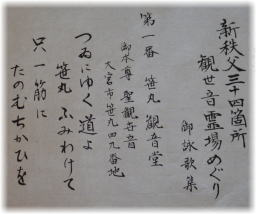 新秩父三十四箇所
観世音霊場めぐり
御詠歌集
第一番 笹丸 観音堂
御本尊 聖観世音
大宮市笹丸四九番地
つゐにゆく道よ
笹丸 ふみわけて
只一筋に
たのむちかひを